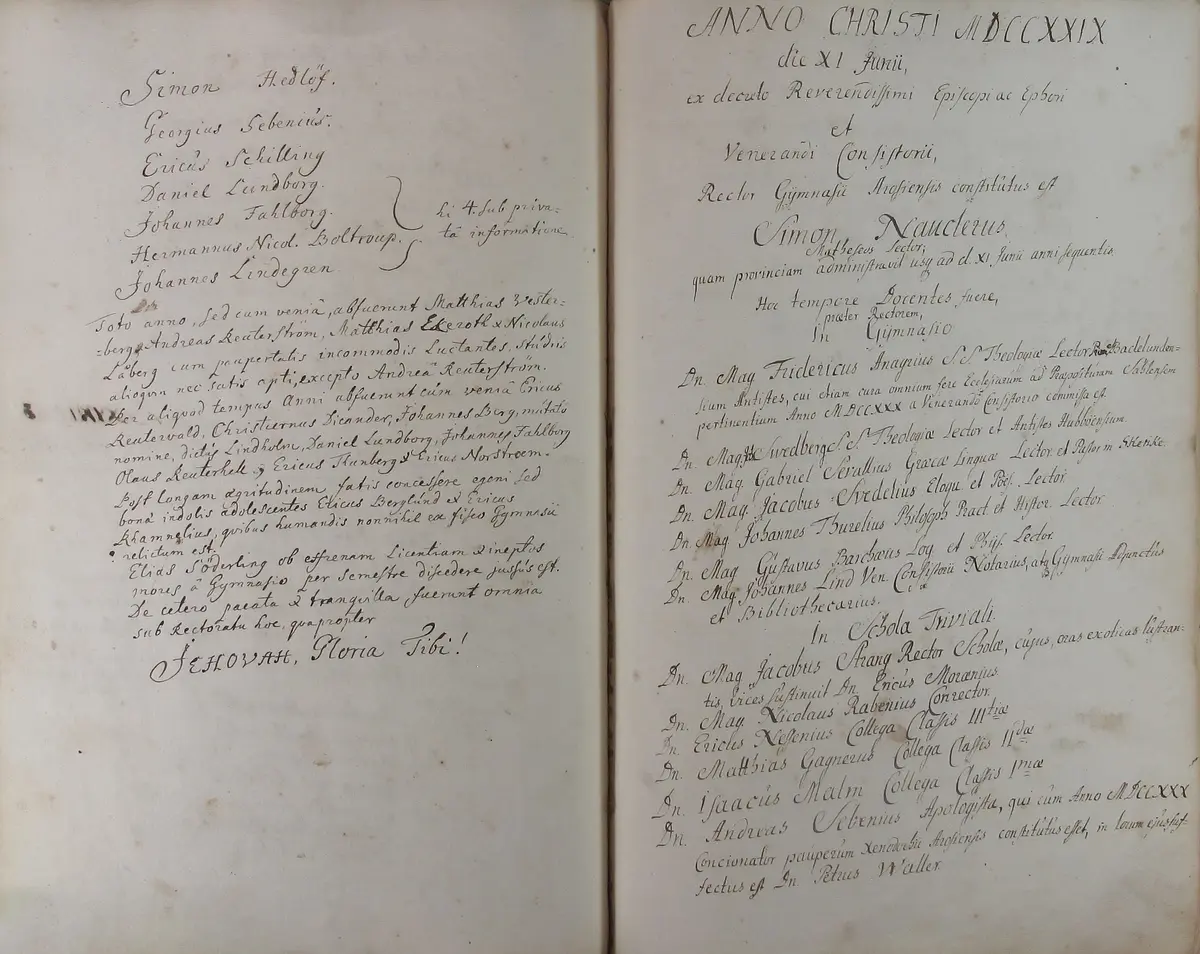 Simon Hedlöf.
Georgius Sebenius.
Ericus Schilling
Daniel Lundborg.
Johannes Fahlborg.
Hermannus Nicol. Boltroup.
Johannes Lindegren
hi 4. sub priva-
tâ informatione
Toto anno, sed cum veniâ, abfuerunt Matthias Wester-
-berg, Andreas Reuterström, Matthias Ekeroth & Nicolaus
Låberg cum paupertatis incommodis Luctantes, Studiis
alioqvin nec satis apti, excepto Andreâ Reuterström.
Per aliqvod tempus Anni abfuerunt cum veniâ Ericus
Reutervald, Christiernus Sicander, Johannes Berg, mutato
nomine, dictus Lindholm, Daniel Lundborg, Johannes Fahlborg
Olaus Reuterhell, Ericus Thunberg & Ericus Norstroem.
Post longam ægritudinem fatis concessere egeni sed
bonæ indolis adolescentes Ericus Berglund & Ericus
Rhamnelius, qvibus humandis nonnihil ex fisco Gymnasii
relictum est.
Elias Söderling ob effrenam Licentiam & ineptos
mores â Gymnasio per semestre discedere jussus est.
De cetero pacata & tranqvilla fuerunt omnia
sub Rectoratu hoc, qvapropter
JEHOVAH, Gloria Tibi!
ANNO CHRISTI MDCCXXIX
die XI Junii,
ex decreto Reverendissimi Episcopi ac Ephori
et
Venerandi Consistorii,
Rector Gymnasii Arosiensis constitutus est
Simon Nauclerus,
Matheseos Lector;
quam provinciam administravit usq ad d. XI Junii anni seqventis.
Hoc tempore Docentes fuere,
præter Rectorem,
In Gymnasio
Dn. Mag Fridericus Anagrius S. S. Theologiæ Lector Badelunden-
sium Antistes, cui etiam cura omnium fere Ecclesiarum ad Præposituram Sahlensem
pertinentium Anno MDCCXXX a Venerando Consistorio commissa est.
Dn. Mag Svedberg S. S. Theologiæ Lector et Antistes Hubboënsium.
Dn. Mag. Gabriel Serallius Græcæ Linguæ Lector et Pastor in Skerike.
Dn. Mag. Jacobus Svedelius Eloqu. et Poës. Lector.
Dn Mag Johannes Thurelius Philosoph Pract et Histor Lector.
Dn. Mag Gustavus Barchæus Log et Phys. Lector.
Dn. Mag Johannes Lind Ven. Consistorii Notarius, atq Gymnasii Adjunctus
et Bibliothecarius.
In Schola Triviali.
Dn. Mag Jacobus Strang Rector Scholæ, cujus, oras exoticas lustran-
tis, vices sustinuit Dn. Ericus Moræus.
Dn. Mag. Nicolaus Rabenius Conrector.
Dn. Ericus Nessenius Collega Classis IIItiæ
Dn. Matthias Gagnerus Collega Classis IIdæ
Dn. Isaacus Malm Collega Classis Imæ
Dn. Andreas Sebenius Apologista, qui cum Anno MDCCXXX
Concionator pauperum Xenodochii Arosiensis constitutus esset, in locum ejus suf-
fectus est Dn Petrus Waller.